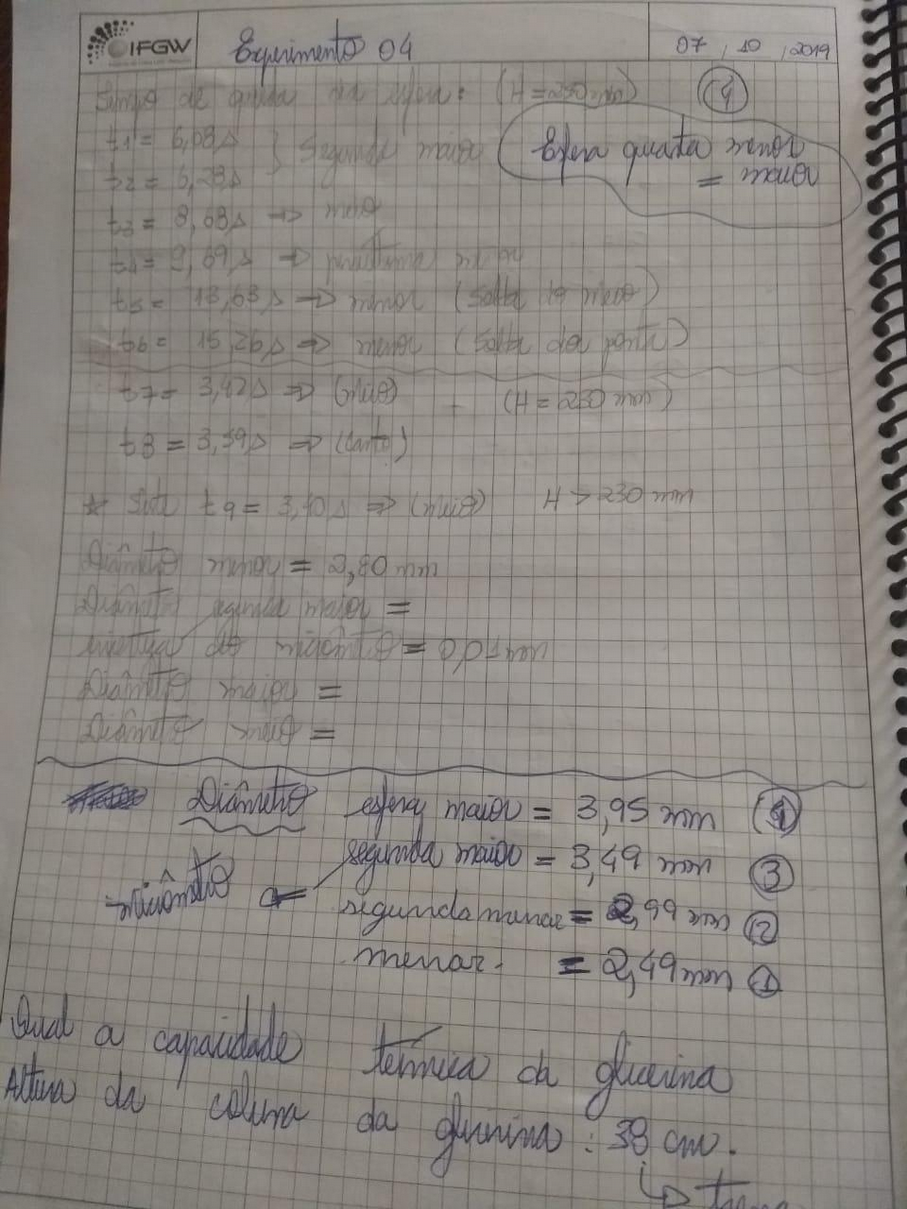 IFGW Experimento 04 07, 10, 2019
Tempo de queda da esfera: (H = 230 mm) 4
t1 = 6,08 s } Segunda maior Esfera quarta menor
t2 = 6,28 s = maior
t3 = 8,68 s →
t4 = 9,69 s →
t5 = 13,63 s → menor (Solta do meio)
t6 = 15,26 s → menor (Solta da ponta)
t7 = 3,42 s → (meio) - (H = 230 mm)
t8 = 3,39 s → (canto)
* t9 = 3,40 s → (meio) H > 230 mm
Diâmetro menor = 2,80 mm
Diâmetro segunda maior =
incerteza do micrômetro = 0,01 mm
Diâmetro maior =
Diâmetro meio =
Diâmetro esfera maior = 3,95 mm
segunda maior = 3,49 mm 3
micrômetro ← segunda menor = 2,99 mm 2
menor. = 2,49 mm 1
Qual a capacidade térmica da glicerina
Altura da coluna da glicerina: 38 cm.